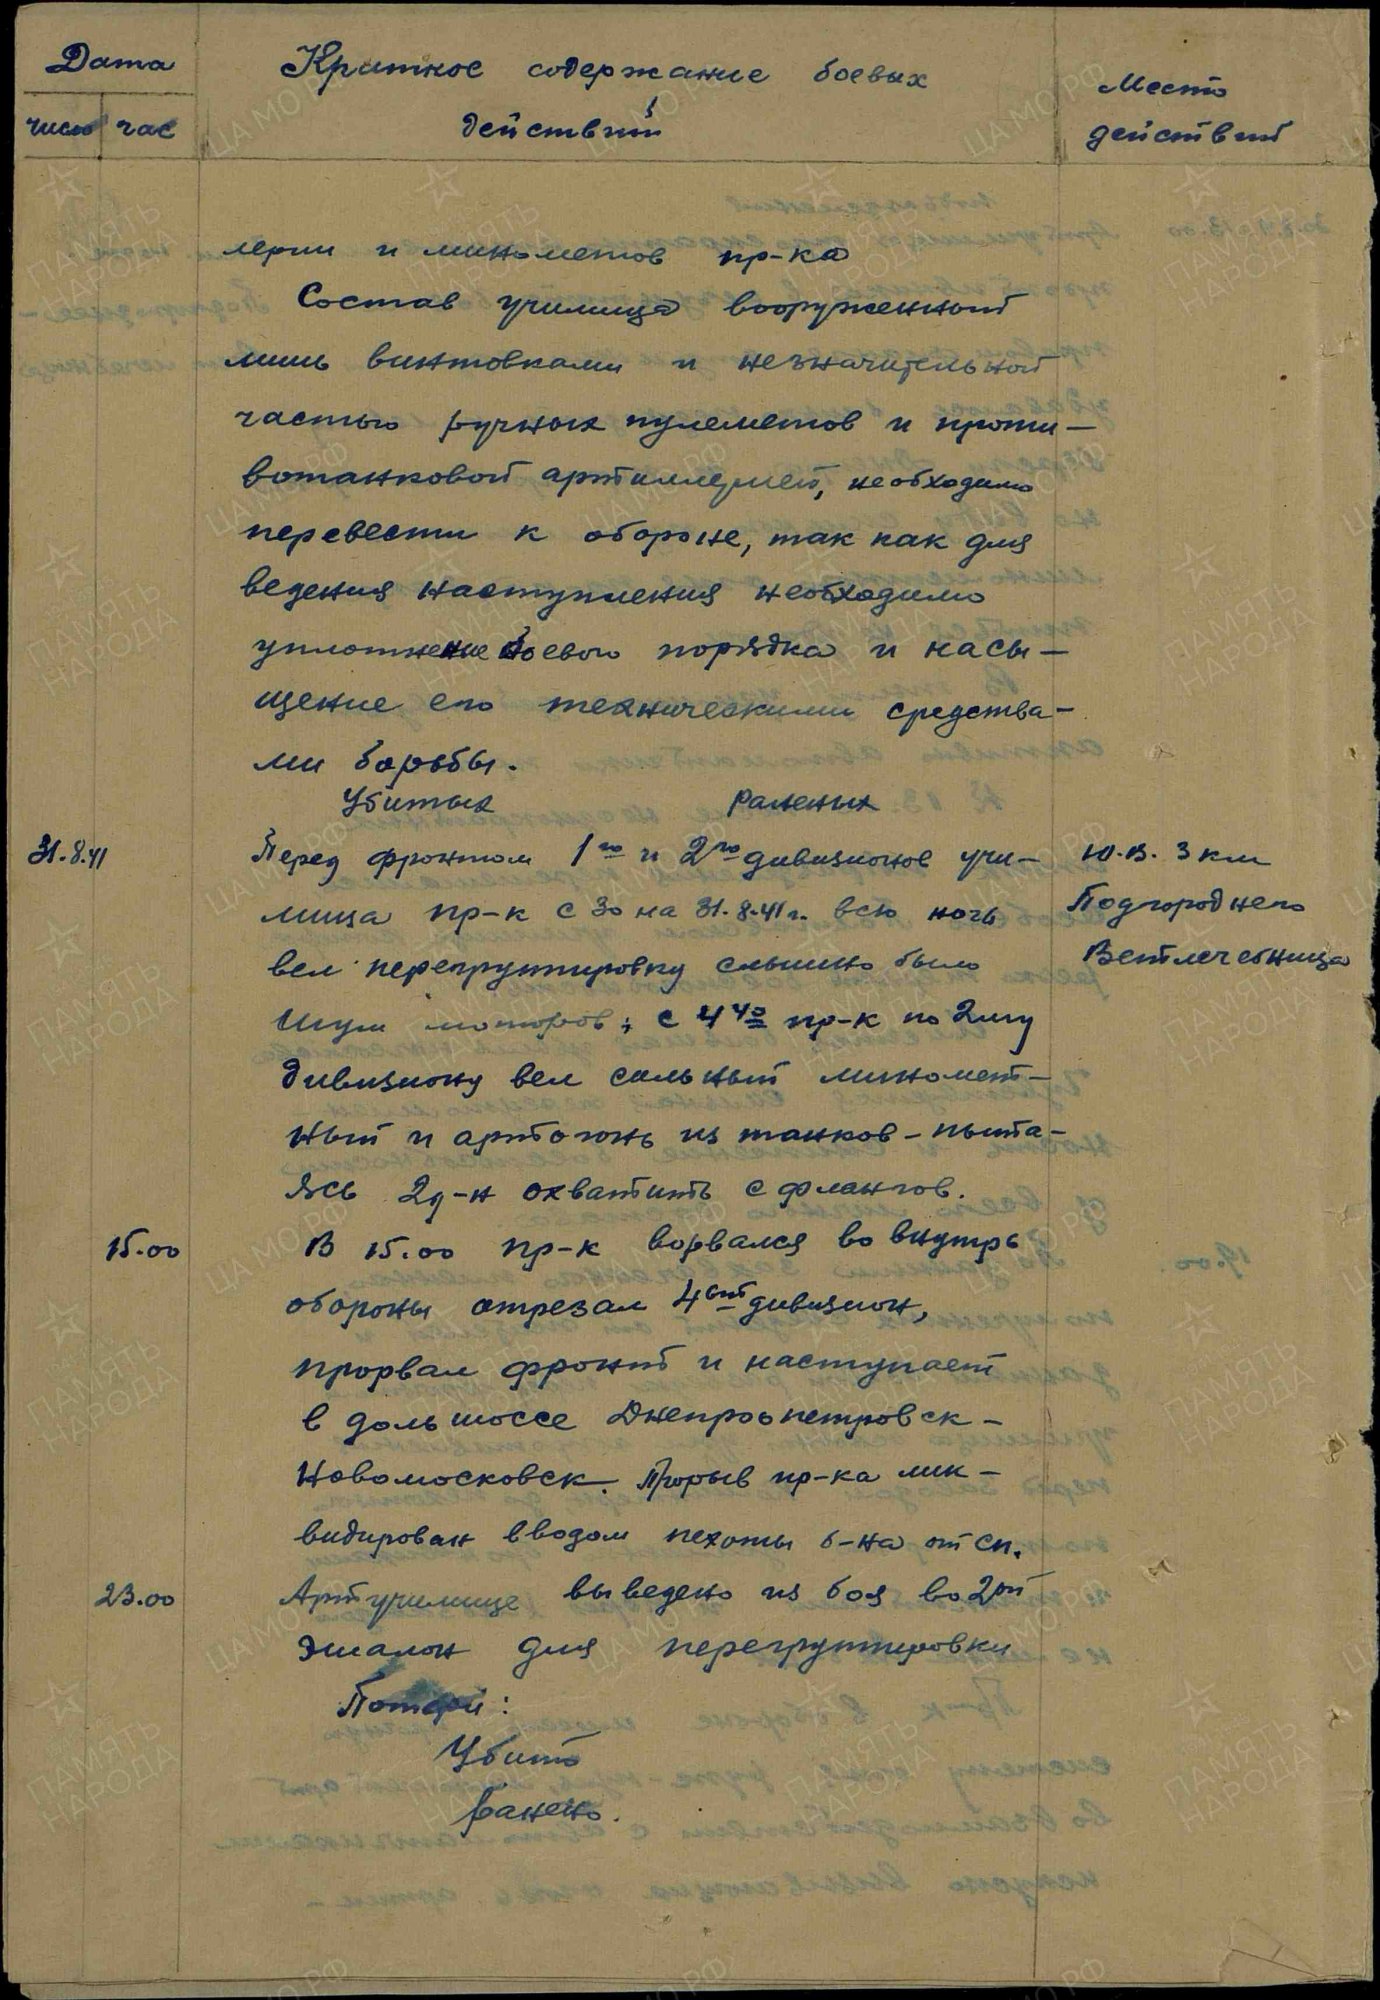 Дата
Краткое содержание боевых
действий
Место
действий
число час
лерии и минометов пр-ка
Состав училища вооруженный
лишь винтовками и незначительной
частью ручных пулеметов и проти-
вотанковой артиллерией, необходимо
перевести к обороне, так как для
ведения наступления необходимо
уплотнение боевого порядка и насы-
щение его техническими средства-
ми борьбы.
Убитых раненых
31.8.41 Перед фронтом 1го и 2го дивизионов учи- Ю.В. 3 км
лища пр-к с 30 на 31.8.41г. всю ночь Подгороднего
вел перегруппировку слышно было Ветлечебница
шум моторов; с 4 40 пр-к по 2му
дивизиону вел сильный миномет-
ный и артогонь из танков - пыта-
ясь 2д-н охватить с флангов.
15.00 В 15.00 пр-к ворвался во внутрь
обороны отрезал 4ый дивизион,
прорвал фронт и наступает
в доль шоссе Днепропетровск-
Новомосковск. Прорыв пр-ка лик-
видирован вводом пехоты б-на от сп.
23.00 Артучилище выведено из боя во 2ой
эшалон для перегруппировки
Потери:
Убито
Ранено.